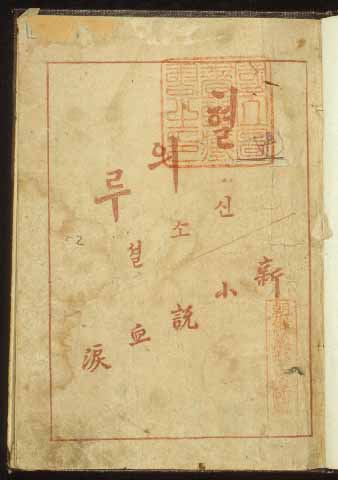 혈의루
신소셜
新小說血淚